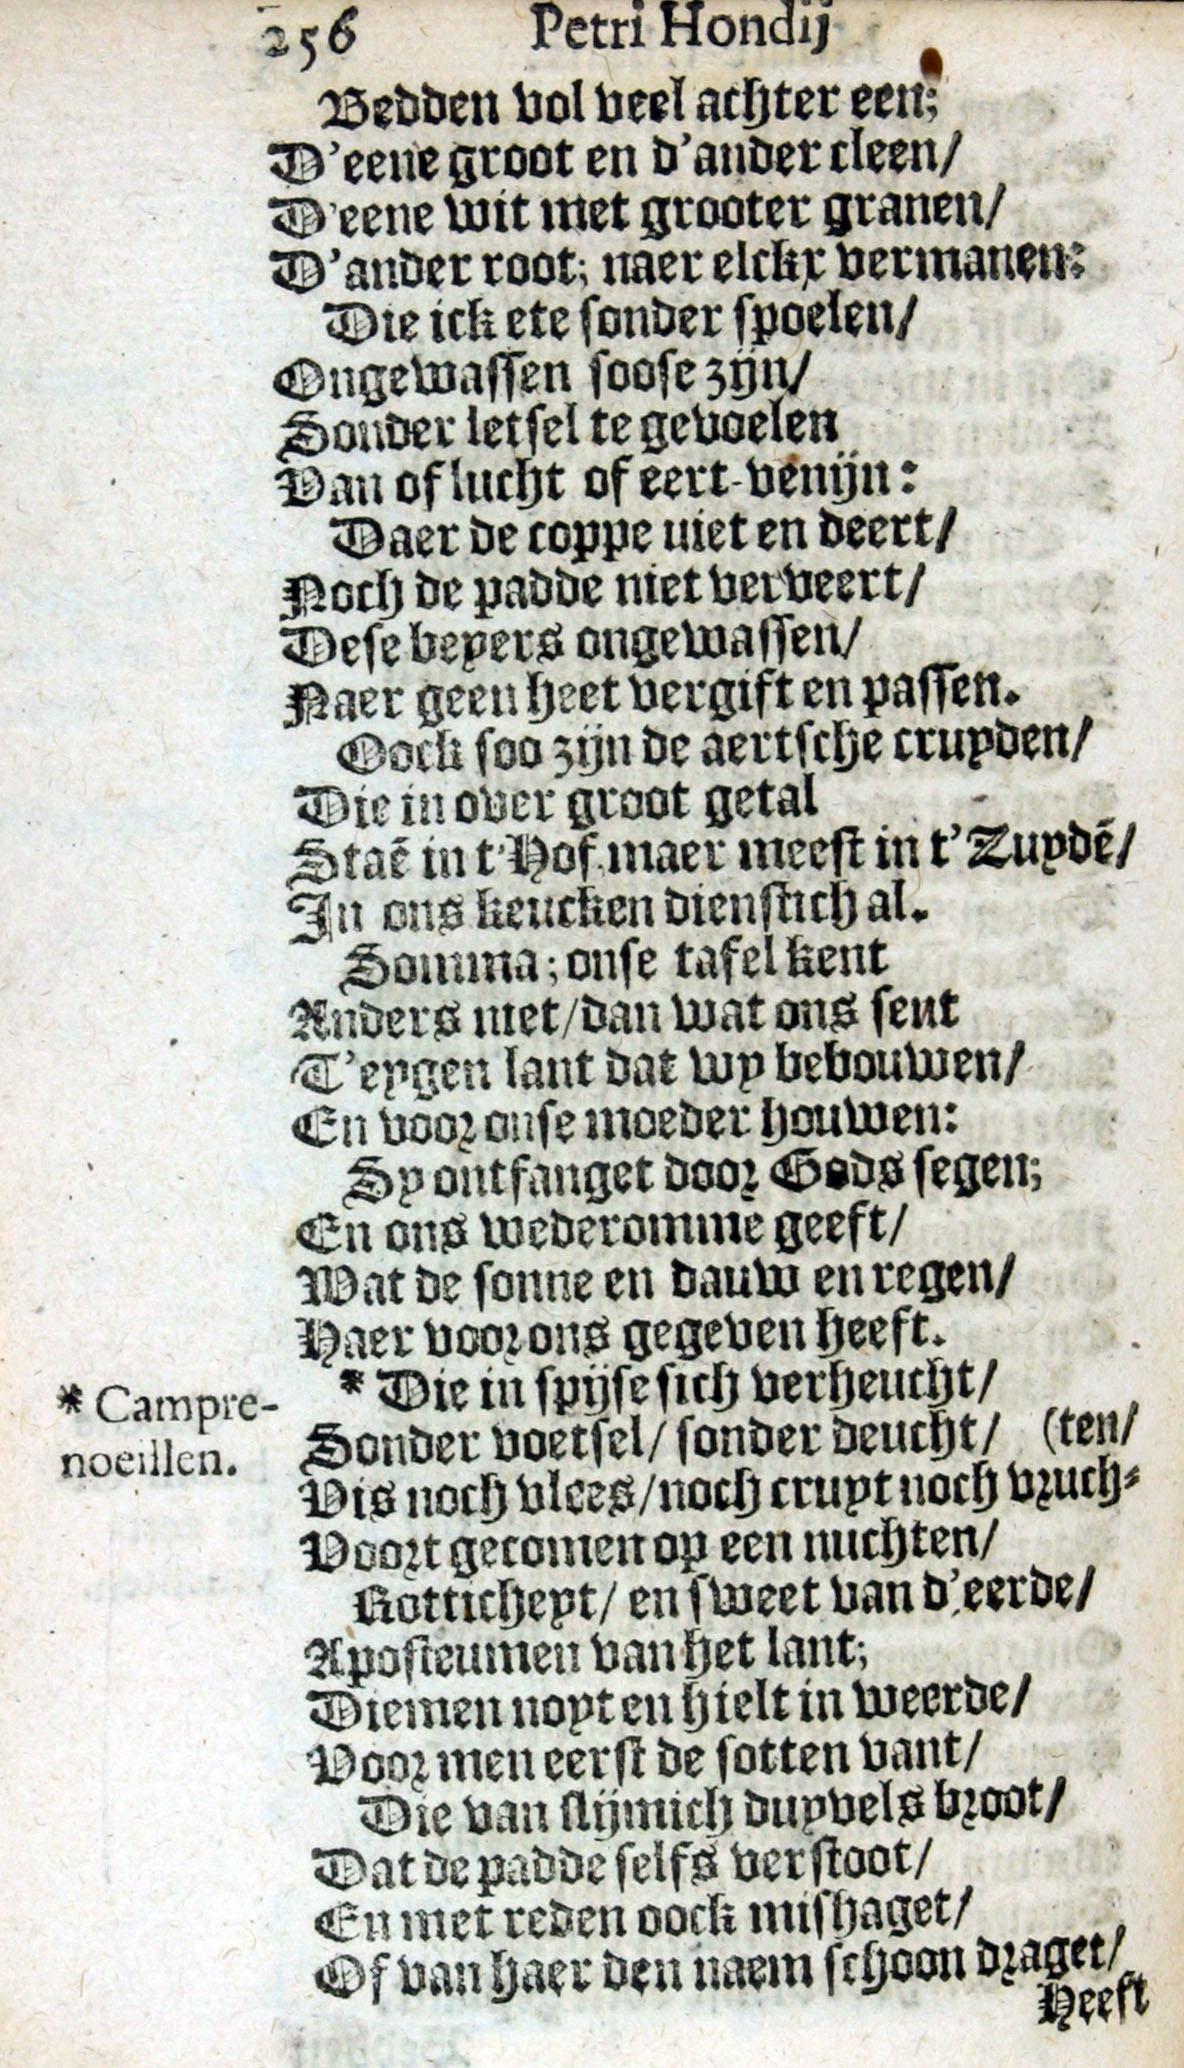 256 Petri Hondij
Bedden vol veel achter een;
D'eene groot en d'ander cleen/
D'eene wit met grooter granen/
D'ander root; naer elckx vermanen:
Die ick ete sonder spoelen/
Ongewassen soose zijn/
Sonder letsel te gevoelen
Van of lucht of eert-venijn:
Daer de coppe niet en deert/
Noch de padde niet verveert/
Dese beyers ongewassen/
Naer geen heet vergift en passen.
Oock soo zijn de aertsche cruyden/
Die in over groot getal
Staē in t'Hof maer meest in t'Zuydē/
In ons keucken dienstich al.
Somma; onse tafel kent
Anders niet/dan wat ons sent
T'eygen lant dat wy bebouwen/
En voor onse moeder houwen:
Sy ontfanget door Gods segen;
En ons wederomme geeft/
Wat de sonne en dauw en regen/
Haer voor ons gegeven heeft.
* Die in spijse sich verheucht/
* Campre-
noeillen.
Sonder voetsel/ sonder deucht/ (ten/
Vis noch vlees/noch cruyt noch vruch-
Voort gecomen op een nuchten/
Rotticheyt/ en sweet van d'eerde/
Aposteumen van het lant;
Diemen noyt en hielt in weerde/
Voor men eerst de sotten vant/
Die van slijmich duyvels broot/
Dat de padde selfs verstoot/
En met reden oock mishaget/
Of van haer den naem schoon draget/
Heeft